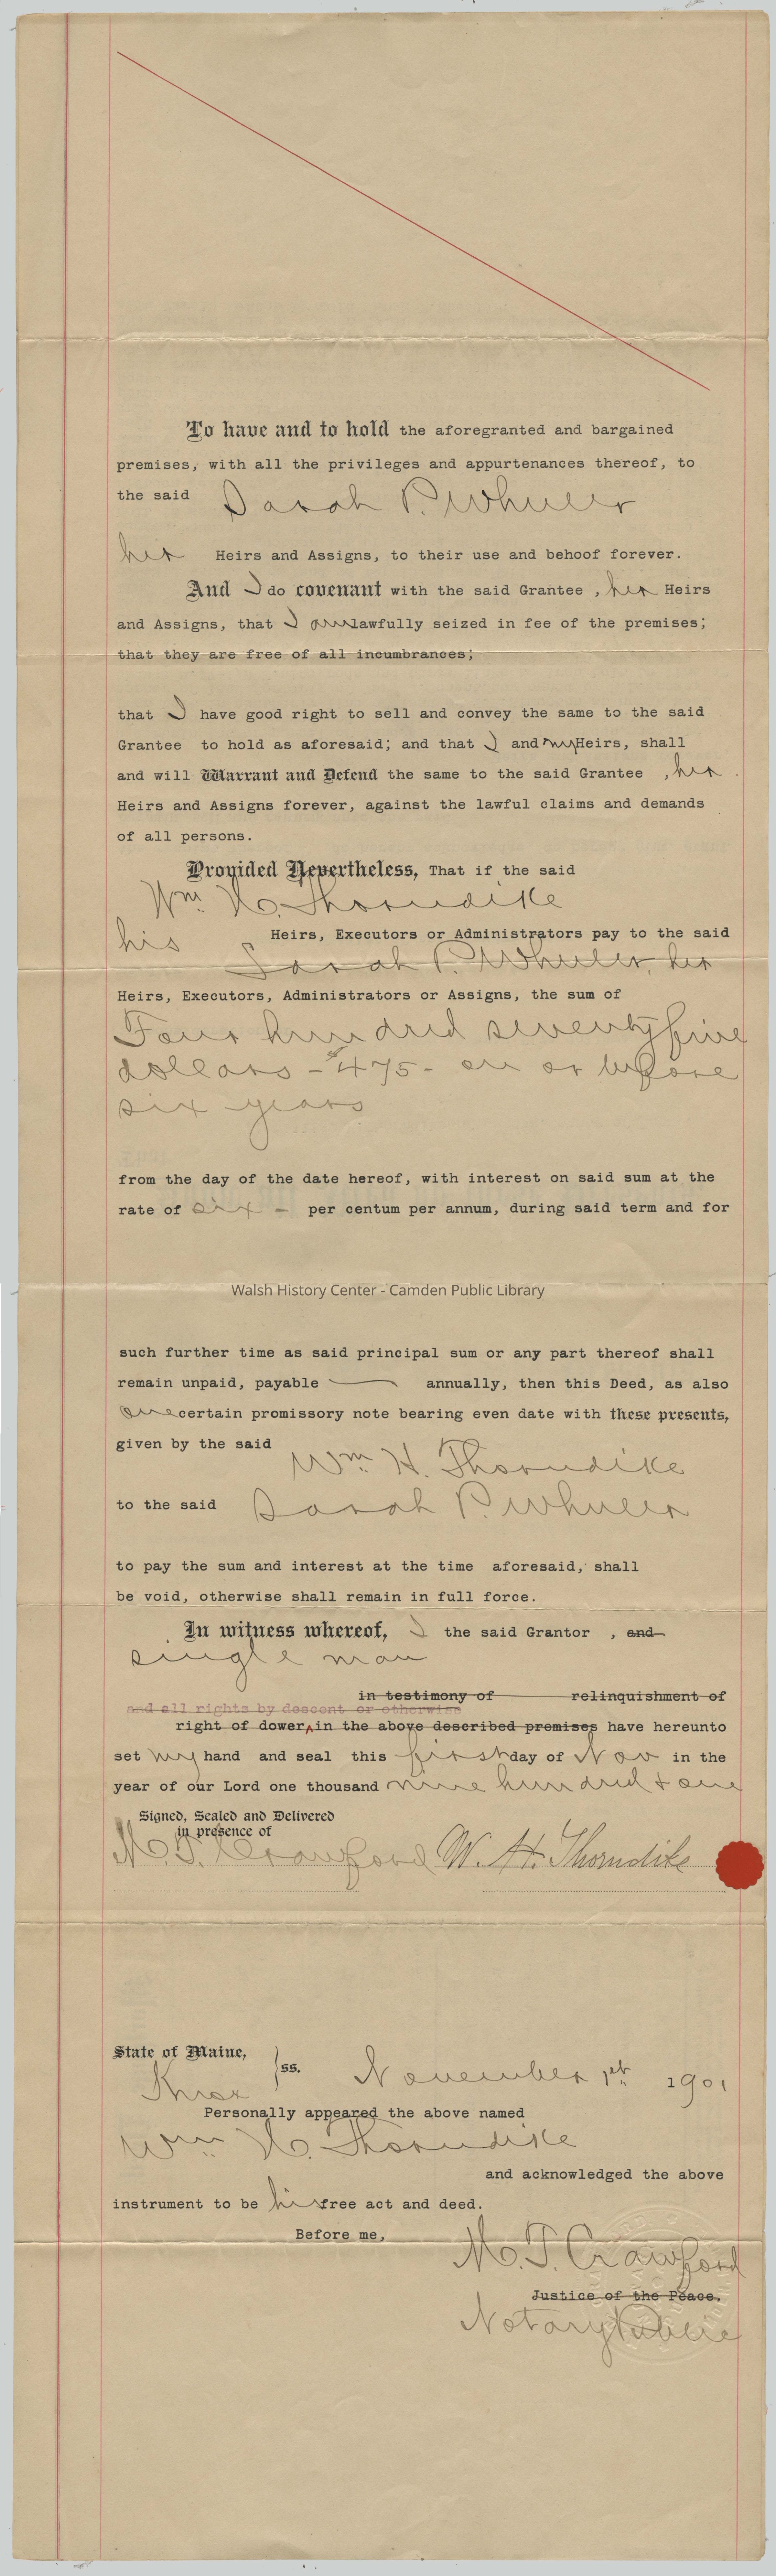 To have and to hold the aforegranted and bargained
premises, with all the privileges and appurtenances thereof, to
the said Sarah P. Wheeler
her Heirs and Assigns, to their use and behoof forever.
And I do covenant with the said Grantee , her Heirs
and Assigns, that I am lawfully seized in fee of the premises;
that they are free of all incumbrances;
that I have good right to sell and convey the same to the said
Grantee to hold as aforesaid; and that I and my Heirs, shall
and will Warrant and Defend the same to the said Grantee , her
Heirs and Assigns forever, against the lawful claims and demands
of all persons.
Provided Nevertheless, That if the said
Wm. H. Thorndike
his Heirs, Executors or Administrators pay to the said
Sarah P. Wheeler, her
Heirs, Executors, Administrators or Assigns, the sum of
Four hundred seventy five
dollars - $475 - on or before
six years
from the day of the date hereof, with interest on said sum at the
rate of six - per centum per annum, during said term and for
Walsh History Center - Camden Public Library
such further time as said principal sum or any part thereof shall
remain unpaid, payable annually, then this Deed, as also
one certain promissory note bearing even date with these presents,
given by the said
Wm. H. Thorndike
to the said Sarah P. Wheeler
to pay the sum and interest at the time aforesaid, shall
be void, otherwise shall remain in full force.
In witness whereof, I the said Grantor , and
single man
in testimony of relinquishment of
and all rights by descent or otherwise
right of dower, in the above described premises have hereunto
set my hand and seal this first day of Nov in the
year of our Lord one thousand nine hundred & one
Signed, Sealed and Delivered
in presence of
M. T. Crawford W. H. Thorndike
State of Maine,
Knox ss. November 1st 1901
Personally appeared the above named
Wm. H. Thorndike
and acknowledged the above
instrument to be his free act and deed.
Before me,
M. T. Crawford
Justice of the Peace.
Notary Public